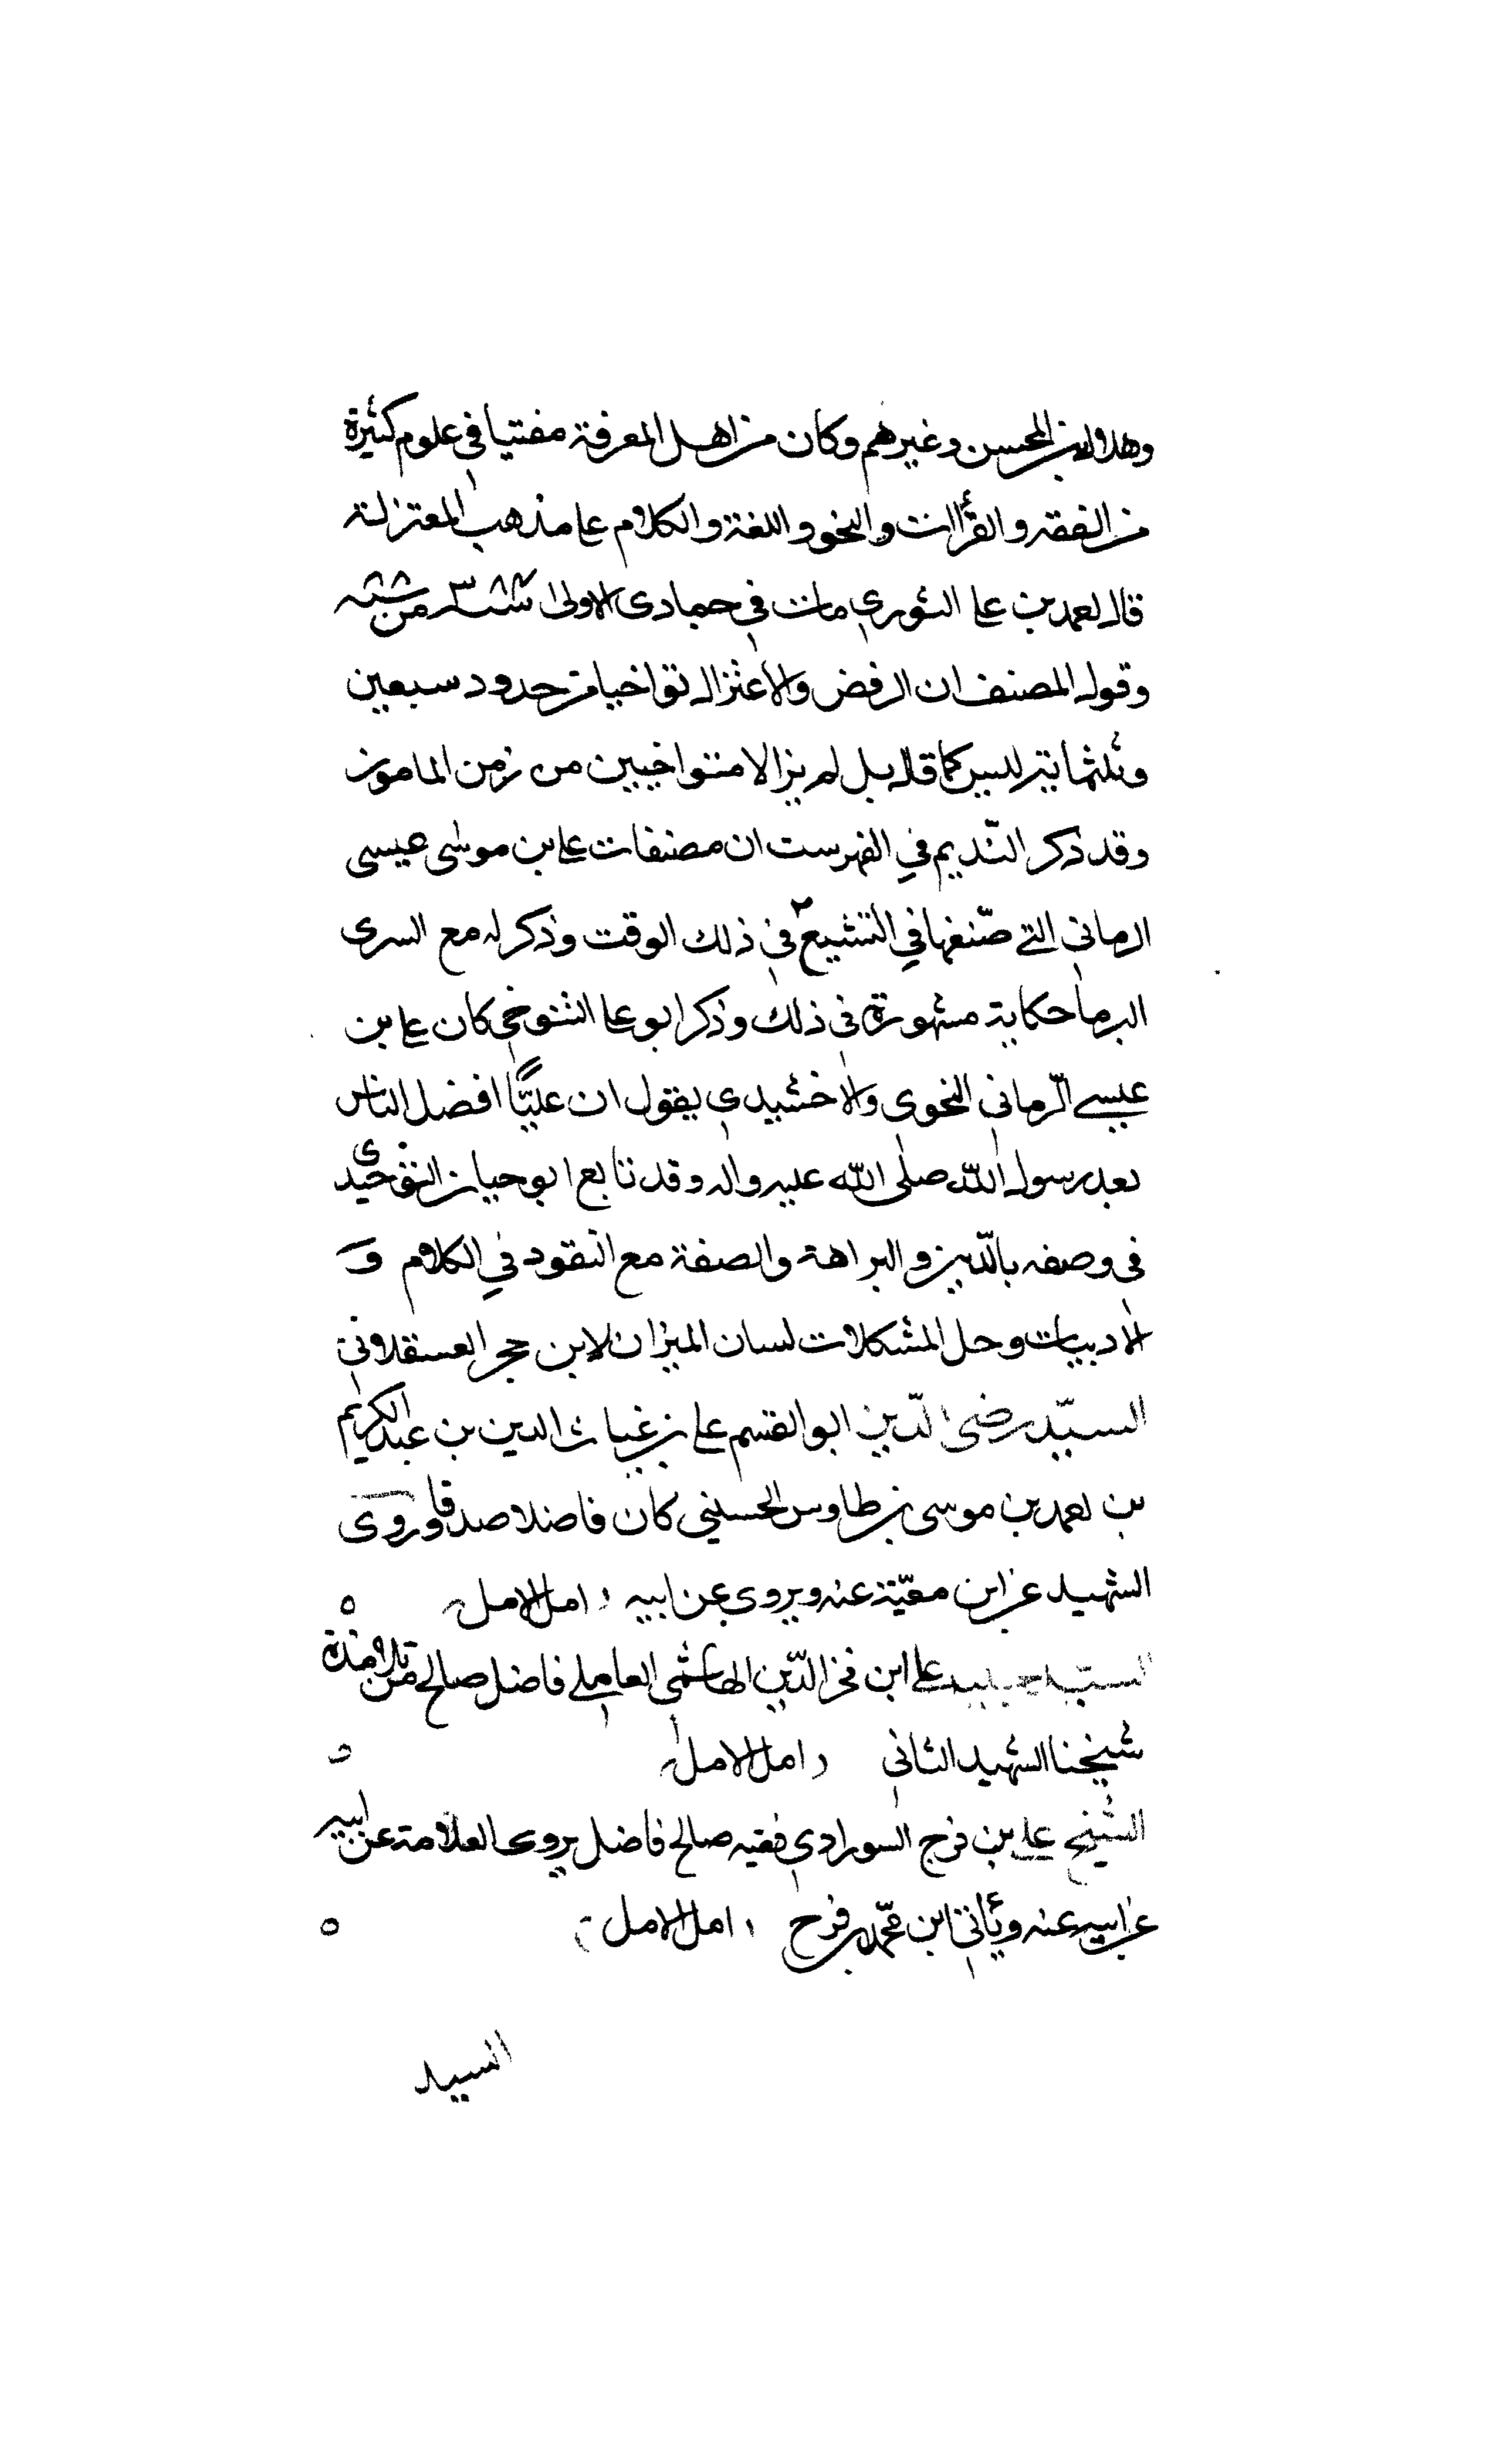 وهلال بن المحسن وغيرهم وكان من اهل المعرفة مفتيا في علوم كثيرة
من الفقه والقرأات والنحو واللغة والكلام على مذهب المعتزلة
قال محمد بن على الثوري مات في جمادى الاولى من
وقول المصنف ان الرفض والاعتزال تواخيا من حدود سبعين
وثلثماية ليس كما قال بل لم يزالا متواخيين من زمن المامون
وقد ذكر النّديم في الفهرست ان مصنفات على بن موسى عيسى
الرماني التي صنّفها في التشيع في ذلك الوقت وذكر له مع السرى
الرفا حكاية مشهورة في ذلك وذكر ابو على التنوخي كان على بن
عيسى الرّماني النحوى والاخشيدي يقول ان عليّا افضل الناس
بعد رسول اللّه صلى اللّه عليه واله وقد تابع ابو حيان التوحيدى
في وصفه بالدّين و والصفة مع النقود في الكلام و
الادبيات وحل المشكلات لسان الميزان لابن حجر العسقلاني
السيّد رضى الدّين ابو القسم على بن غياث الدين بن عبد الكريم
بن احمد بن موسى بن طاوس الحسيني كان فاضلا صدوقا وروى
الشهيد عن ابن معيّة عنه ويروي عن ابيه امل الامل ه
السيّد على ابن فخر الدّين الهاشمى العاملي فاضل صالح من تلامذة
شيخنا الشهيد الثاني امل الامل ه
الشيخ على بن فرج السوراوي فقيه صالح فاضل يروى العلامة عن ابيه
عن ابيه عنه ويأتي ابن محمّد بن فرج امل الامل ه
السيد